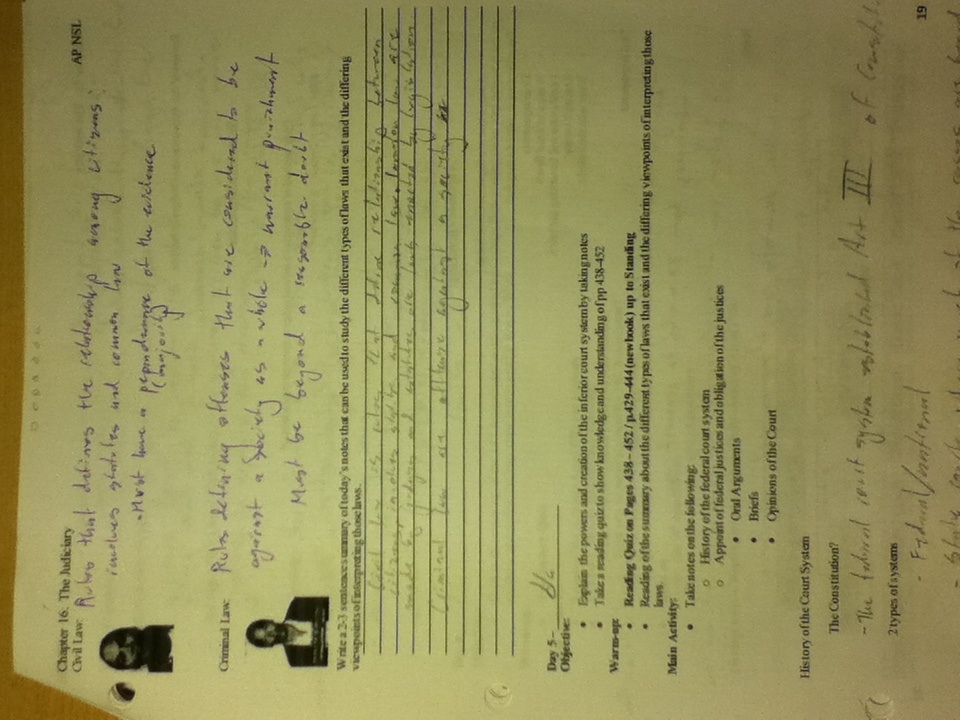 Chapter 16: The Judiciary
AP NSL
Civil Law: Rules that defines the relationship among citizens:
involves statutes and common law
- Must have a pepondurance of the evidence
(majority)
Criminal Law: Rules defining offenses that are considered to be
against a society as a whole → warrant punishment
Must be beyond a reasonable doubt
Write a 2-3 sentence summary of today's notes that can be used to study the different types of laws that exist and the differing
viewpoints of interpreting those laws.
Civil law is rules that define relationship between
citizens, involves statute and common law. Common law are
made by judges and statutes are laws enacted by legislation
Criminal law are offense against a society
Day 5 –
Objective:
• Explain the powers and creation of the inferior court system by taking notes
• Take a reading quiz to show knowledge and understanding of pp 438-452
Warm-up:
• Reading Quiz on Pages 438 – 452 / p.429-444 (new book) up to Standing
• Reading of the summary about the different types of laws that exist and the differing viewpoints of interpreting those
laws.
Main Activity:
• Take notes on the following:
o History of the federal court system
o Appoint of federal justices and obligation of the justices
• Oral Arguments
• Briefs
• Opinions of the Court
History of the Court System
The Constitution?
- The federal court system established Art III of Constit
2 types of systems
- Federal/national
19
- State courts where most of the cases are heard